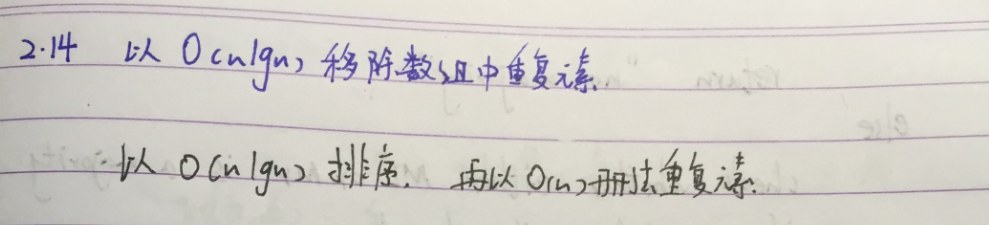 2.14 以 O(nlgn) 移除数组中重复元素.
以 O(nlgn) 排序. 再以 O(n) 删去重复元素.